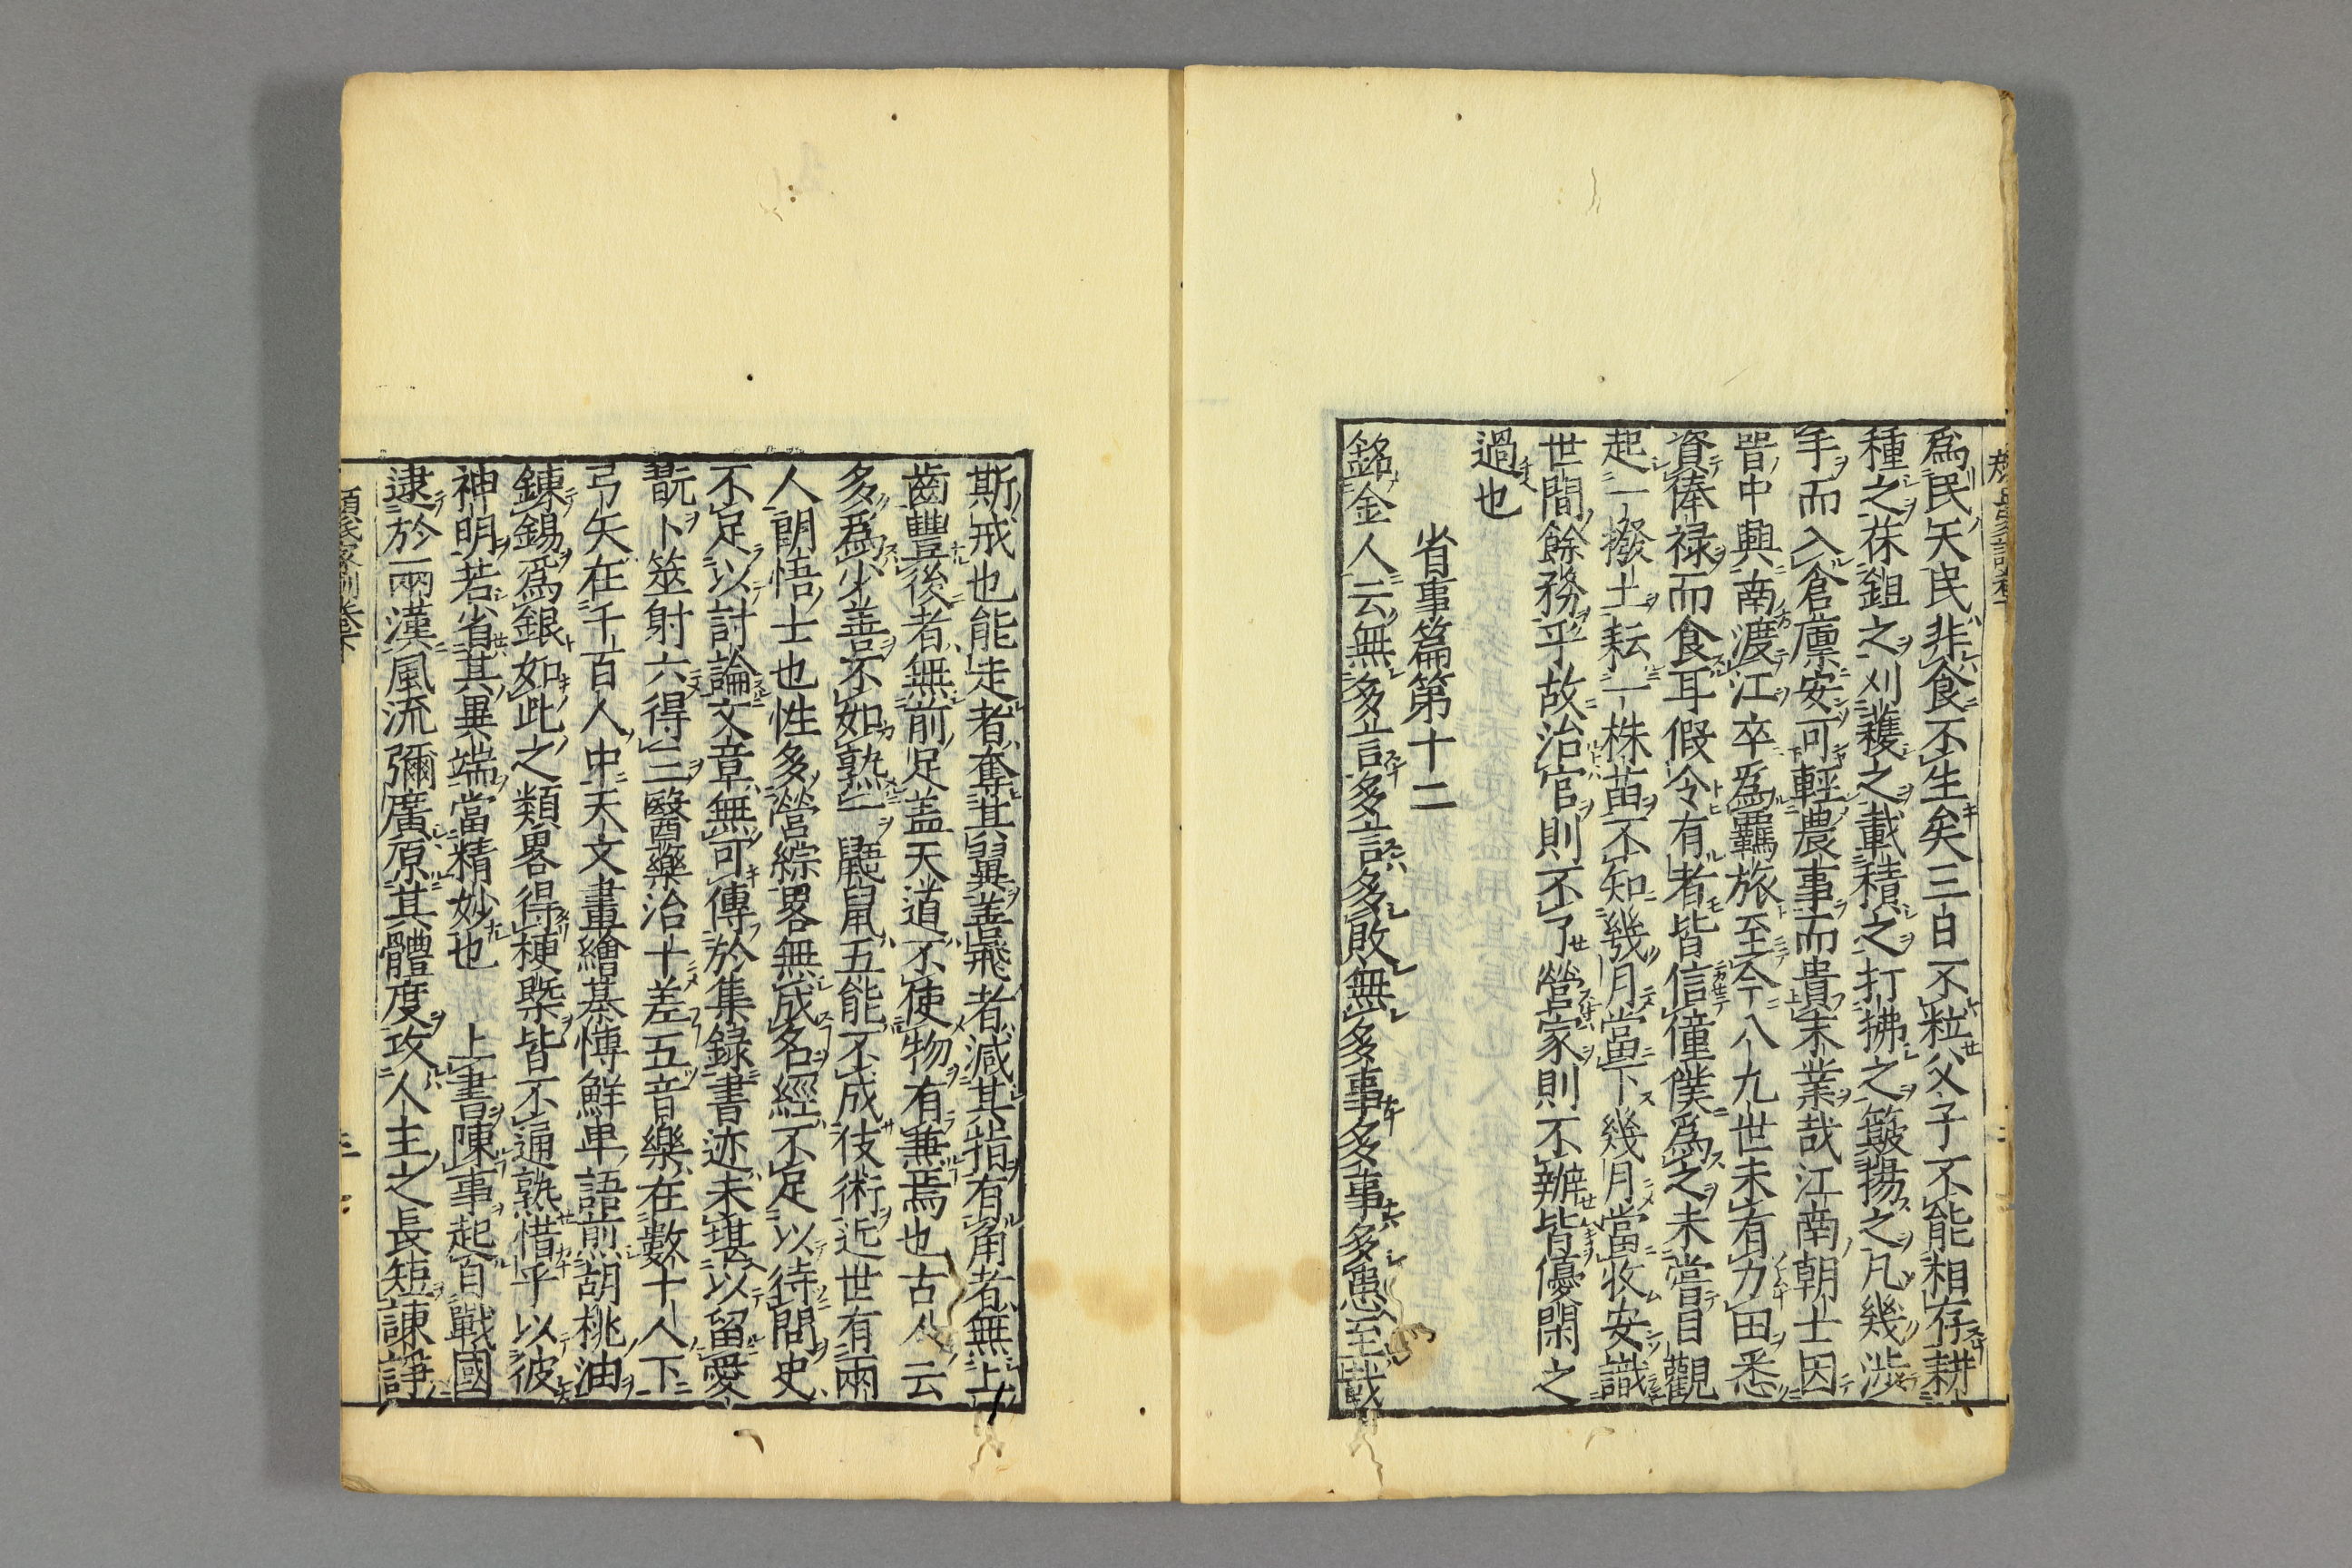 爲民天民非食不生矣三日不粒父子不能相存耕
種之茠鉏之刈穫之載積之打拂之簸揚之凡幾涉
手而入倉廩安可輕農事而貴末業哉江南朝士因
晋中興南渡江卒爲羈旅至今八九世未有力田悉
資俸禄而食耳假令有者皆信僮僕爲之未嘗目觀
起一撥土耘一株苗不知幾月當下幾月當收安識
世間餘務乎故治官則不了營家則不辦皆優閑之
過也
省事篇第十二
銘金人云無多言多言多敗無多事多事多患至哉
斯戒也能走者奪其翼善飛者減其指有角者無上
齒豐後者無前足盖天道不使物有兼焉也古人云
多爲少善不如熟一鼯鼠五能不成伎術近世有兩
人朗悟士也性多營綜畧無成名經不足以待問史
不足以討論文章無可傳於集録書迹未堪以留愛
翫卜筮射六得三醫藥治十差五音樂在數十人下
弓矢在千百人中天文畫繪棊愽鮮卑語煎胡桃油
鍊錫爲銀如此之類畧得梗槩皆不通熟惜乎以彼
神明若省其異端當精妙也 上書陳事起自戰國
逮於兩漢風流彌廣原其體度攻人主之長短諫諍
顔氏家訓卷下